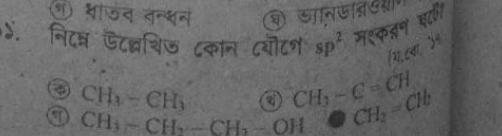 গ) ধাতব বন্ধন ঘ)
১. নিম্নে উল্লেখিত কোন যৌগে sp² সংকরণ ঘটে?
ক) CH₃ – CH₃ খ) CH₃ – C = CH
গ) CH₃ – CH₂ – CH₂ – OH ● CH₂ = CH₂